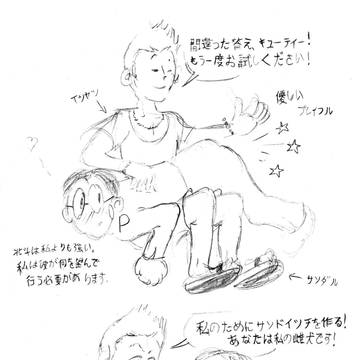 間違った答え、キューティー!
もう一度お試しください!
優しい
プレイフル
P
北斗は私よりも強い。
私は彼が何を望んで
行う必要があります。
サンダル
私のためにサンドイッチを作る!
あなたは私の雌犬です!